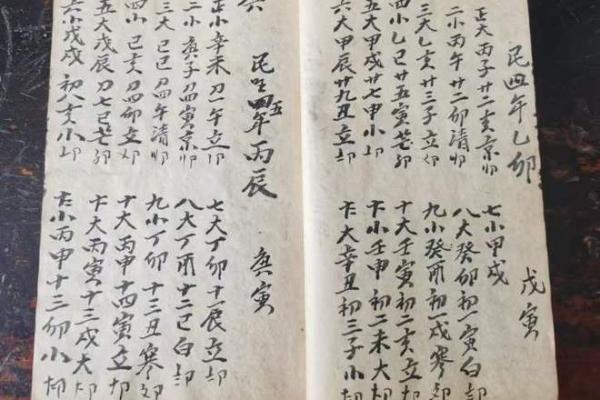 民四年乙卯
戊寅
正大丙子廿二亥京
二小丙午廿二卯清
三大乙亥廿三子立
四小乙巳廿五寅芒
五大甲戌廿七申小
六大甲辰廿九丑立
七小甲戌
八大癸卯初一寅白
九小癸酉初一戌寒
十大壬寅初二亥立
小壬申初二未大
大辛丑初三子小
六
民五年丙辰
庚寅
正小辛未刀一午立
二小庚子刀四寅京
三大己巳刀四午清
四小己亥刀四卯立
五大戊辰刀七巳芒
六小戊戌初八亥小
七大丁卯十一辰立
八大丁酉十二巳白
九小丁卯十三丑寒
十大丙申十四寅立
大丙寅十三戌大
小丙申十三卯小